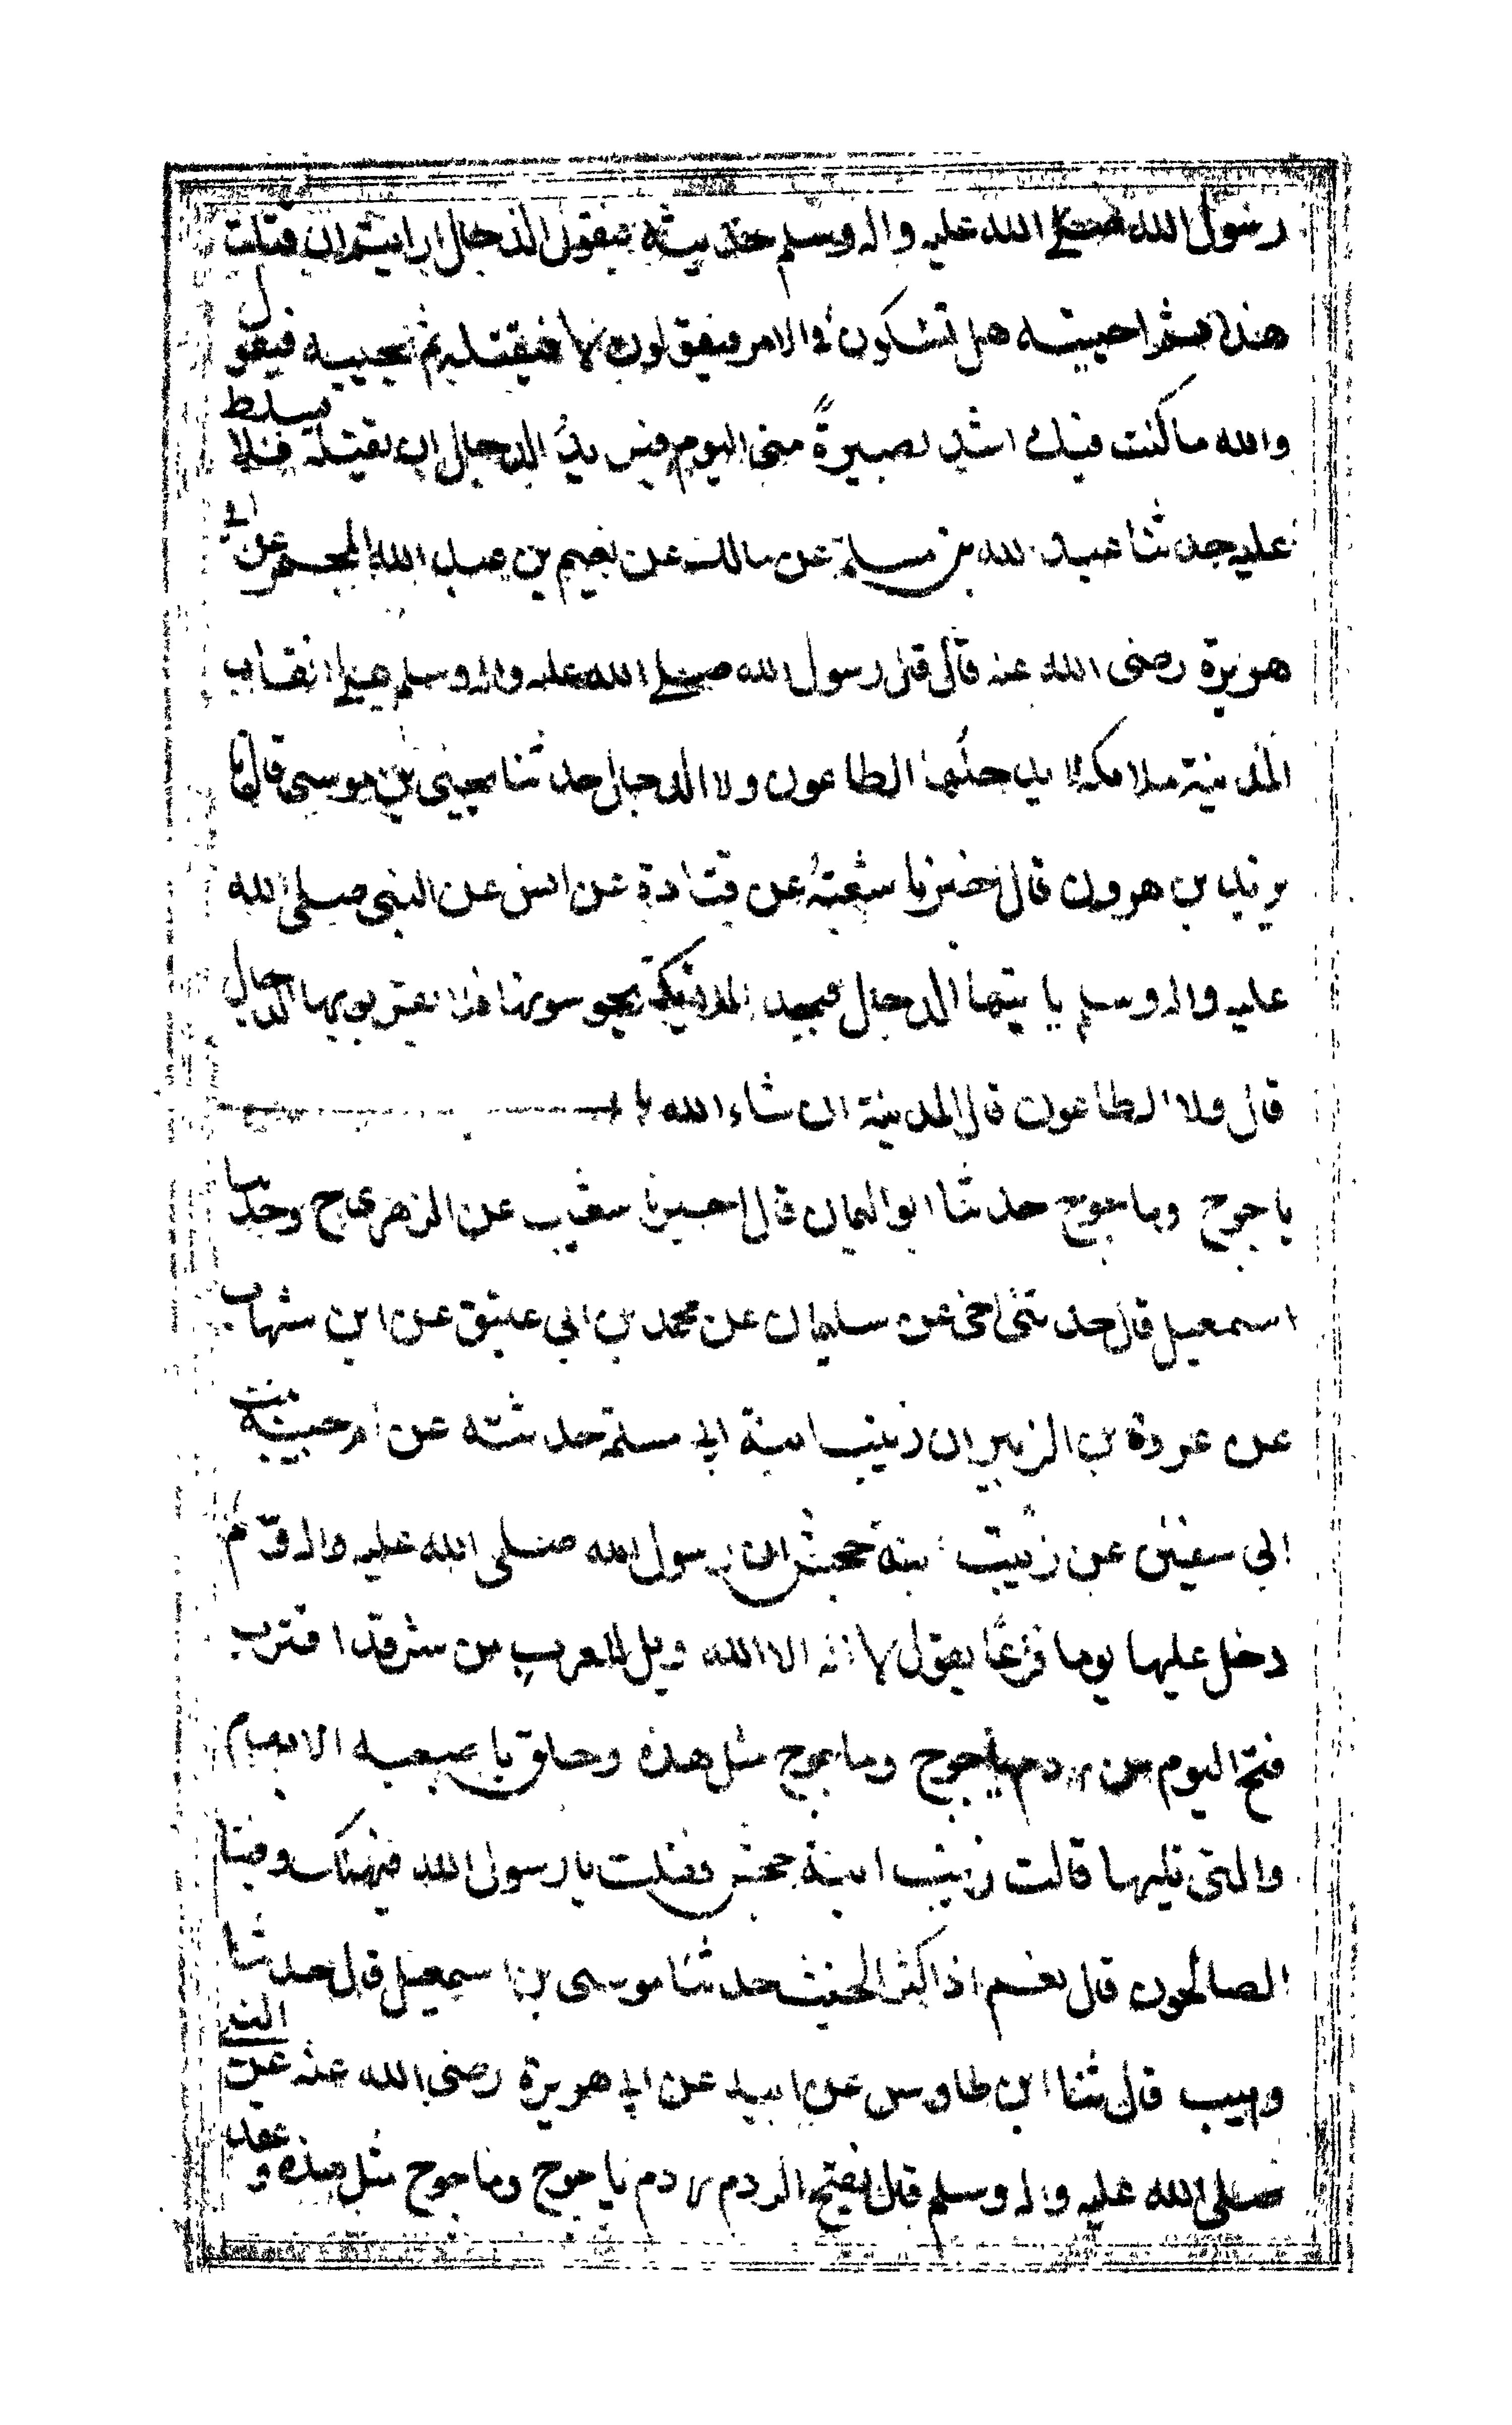 رسول الله صلى الله عليه واله وسلم حديثه فيقول الدجال ارايتم ان قتلت
هذا ثم احييته هل تشكون في الامر فيقولون لا فيقتله ثم يحييه فيقول
والله ما كنت فيك اشد بصيرةً مني اليوم فيريدُ الدجال ان يقتله فلا يسلط
عليه حدثنا عبد الله بن مسلمة عن مالك عن نعيم بن عبد الله المجمر عن ابي
هريرة رضى الله عنه قال قال رسول الله صلى الله عليه واله وسلم على انقاب
المدينة ملائكة لا يدخلها الطاعون ولا الدجال حدثنا يحيى بن موسى قال نا
يزيد بن هرون قال اخبرنا شعبة عن قتادة عن انس عن النبي صلى الله
عليه واله وسلم ياتيها الدجال فيجد الملائكة يحرسونها فلا يقربها الدجال
قال ولا الطاعون قال المدينة ان شاء الله با
ياجوج وماجوج حدثنا ابو اليمان قال اخبرنا شعيب عن الزهري ح وحدثنا
اسمعيل قال حدثني اخي عن سليمان عن محمد بن ابي عتيق عن ابن شهاب
عن عروة بن الزبير ان زينب ابنة ابي سلمة حدثته عن ام حبيبة بنت
ابي سفين عن زينب ابنة جحش ان رسول الله صلى الله عليه واله وسلم
دخل عليها يوما فزعًا يقول لا اله الا الله ويل للعرب من شر قد اقترب
فتح اليوم من ردم ياجوج وماجوج مثل هذه وحلق باصبعيه الابهام
والتي تليها قالت زينب ابنة جحش فقلت يا رسول الله فنهلك وفينا
الصالحون قال نعم اذا كثر الخبث حدثنا موسى بن اسمعيل قال حدثنا
وهيب قال ثنا ابن طاوس عن ابيه عن ابي هريرة رضى الله عنه عن النبي
صلى الله عليه واله وسلم قال يفتح الردم ردم ياجوج وماجوج مثل هذه وعقد